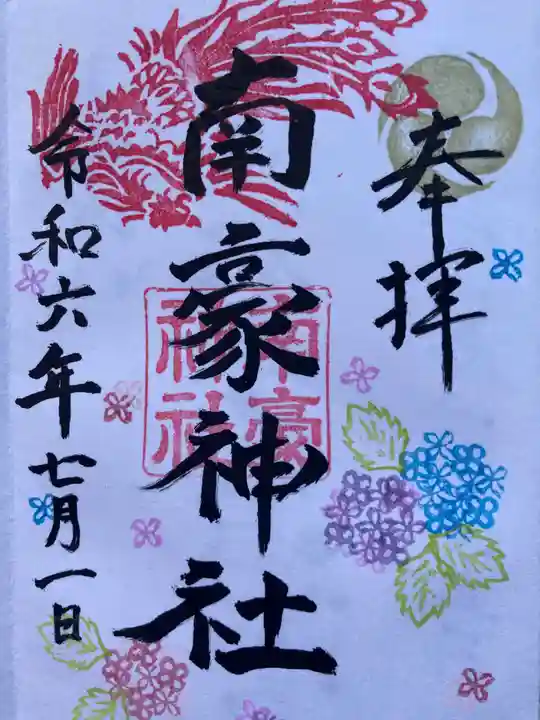 奉拝
南豪神社
南豪神社
令和六年七月一日